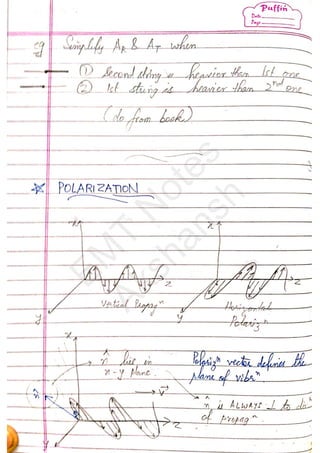 Puffin
Date
Page
eg Simplify AR & AT when
① Second string is heavier than 1st one
② 1st string is heavier than 2nd one
(do from book)
POLARIZATION
x
x
z
z
Vertical Propagⁿ
Horizontal
y
y
Polarizⁿ
x
n̂ lies in
x-y plane.
Polarizⁿ vector defines the
plane of vibrⁿ
n̂
→ v
n̂ is ALWAYS ⊥ to dirⁿ
of propagⁿ.
z
y
EMT Notes